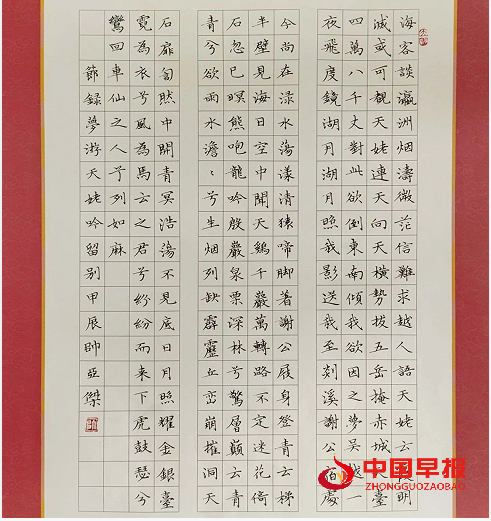 海客談瀛洲烟濤微茫信難求越人語天姥云霞明
滅或可覩天姥連天向天橫勢拔五岳掩赤城臺
四萬八千丈對此欲倒東南傾我欲因之夢吳越一
夜飛度鏡湖月湖月照我影送我至剡溪謝公宿處
今尚在淥水蕩漾清猿啼脚著謝公屐身登青云梯
半壁見海日空中聞天鷄千巖萬轉路不定迷花倚
石忽已暝熊咆龍吟殷巖泉栗深林兮驚層巔云青
青兮欲雨水澹〻兮生烟列缺霹靂丘巒崩摧洞天
石扉訇然中開青冥浩蕩不見底日月照耀金銀臺
霓為衣兮風為馬云之君兮紛紛而來下虎鼓瑟兮
鸞回車仙之人兮列如麻
節録夢游天姥吟留別甲展帥亞傑
中国早报
ZHONGGUOZAOBAO